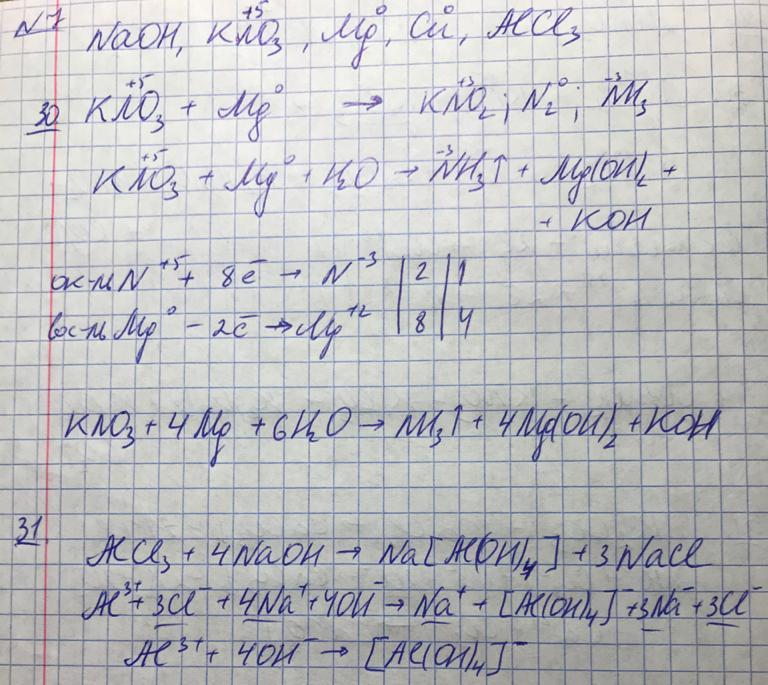 N 7 NaOH, KN⁺⁵O₃, Mg⁰, Cu⁰, AlCl₃
30 KN⁺⁵O₃ + Mg⁰ → KN⁺³O₂; N₂⁰; N⁻³H₃
KN⁺⁵O₃ + Mg⁰ + H₂O → N⁻³H₃↑ + Mg(OH)₂ +
+ KOH
ок-ль N⁺⁵ + 8ē → N⁻³ | 2 | 1
вос-ль Mg⁰ - 2ē → Mg⁺² | 8 | 4
KNO₃ + 4Mg + 6H₂O → NH₃↑ + 4Mg(OH)₂ + KOH
31 AlCl₃ + 4NaOH → Na[Al(OH)₄] + 3NaCl
Al³⁺ + 3Cl⁻ + 4Na⁺ + 4OH⁻ → Na⁺ + [Al(OH)₄]⁻ + 3Na⁻ + 3Cl⁻
Al³⁺ + 4OH⁻ → [Al(OH)₄]⁻